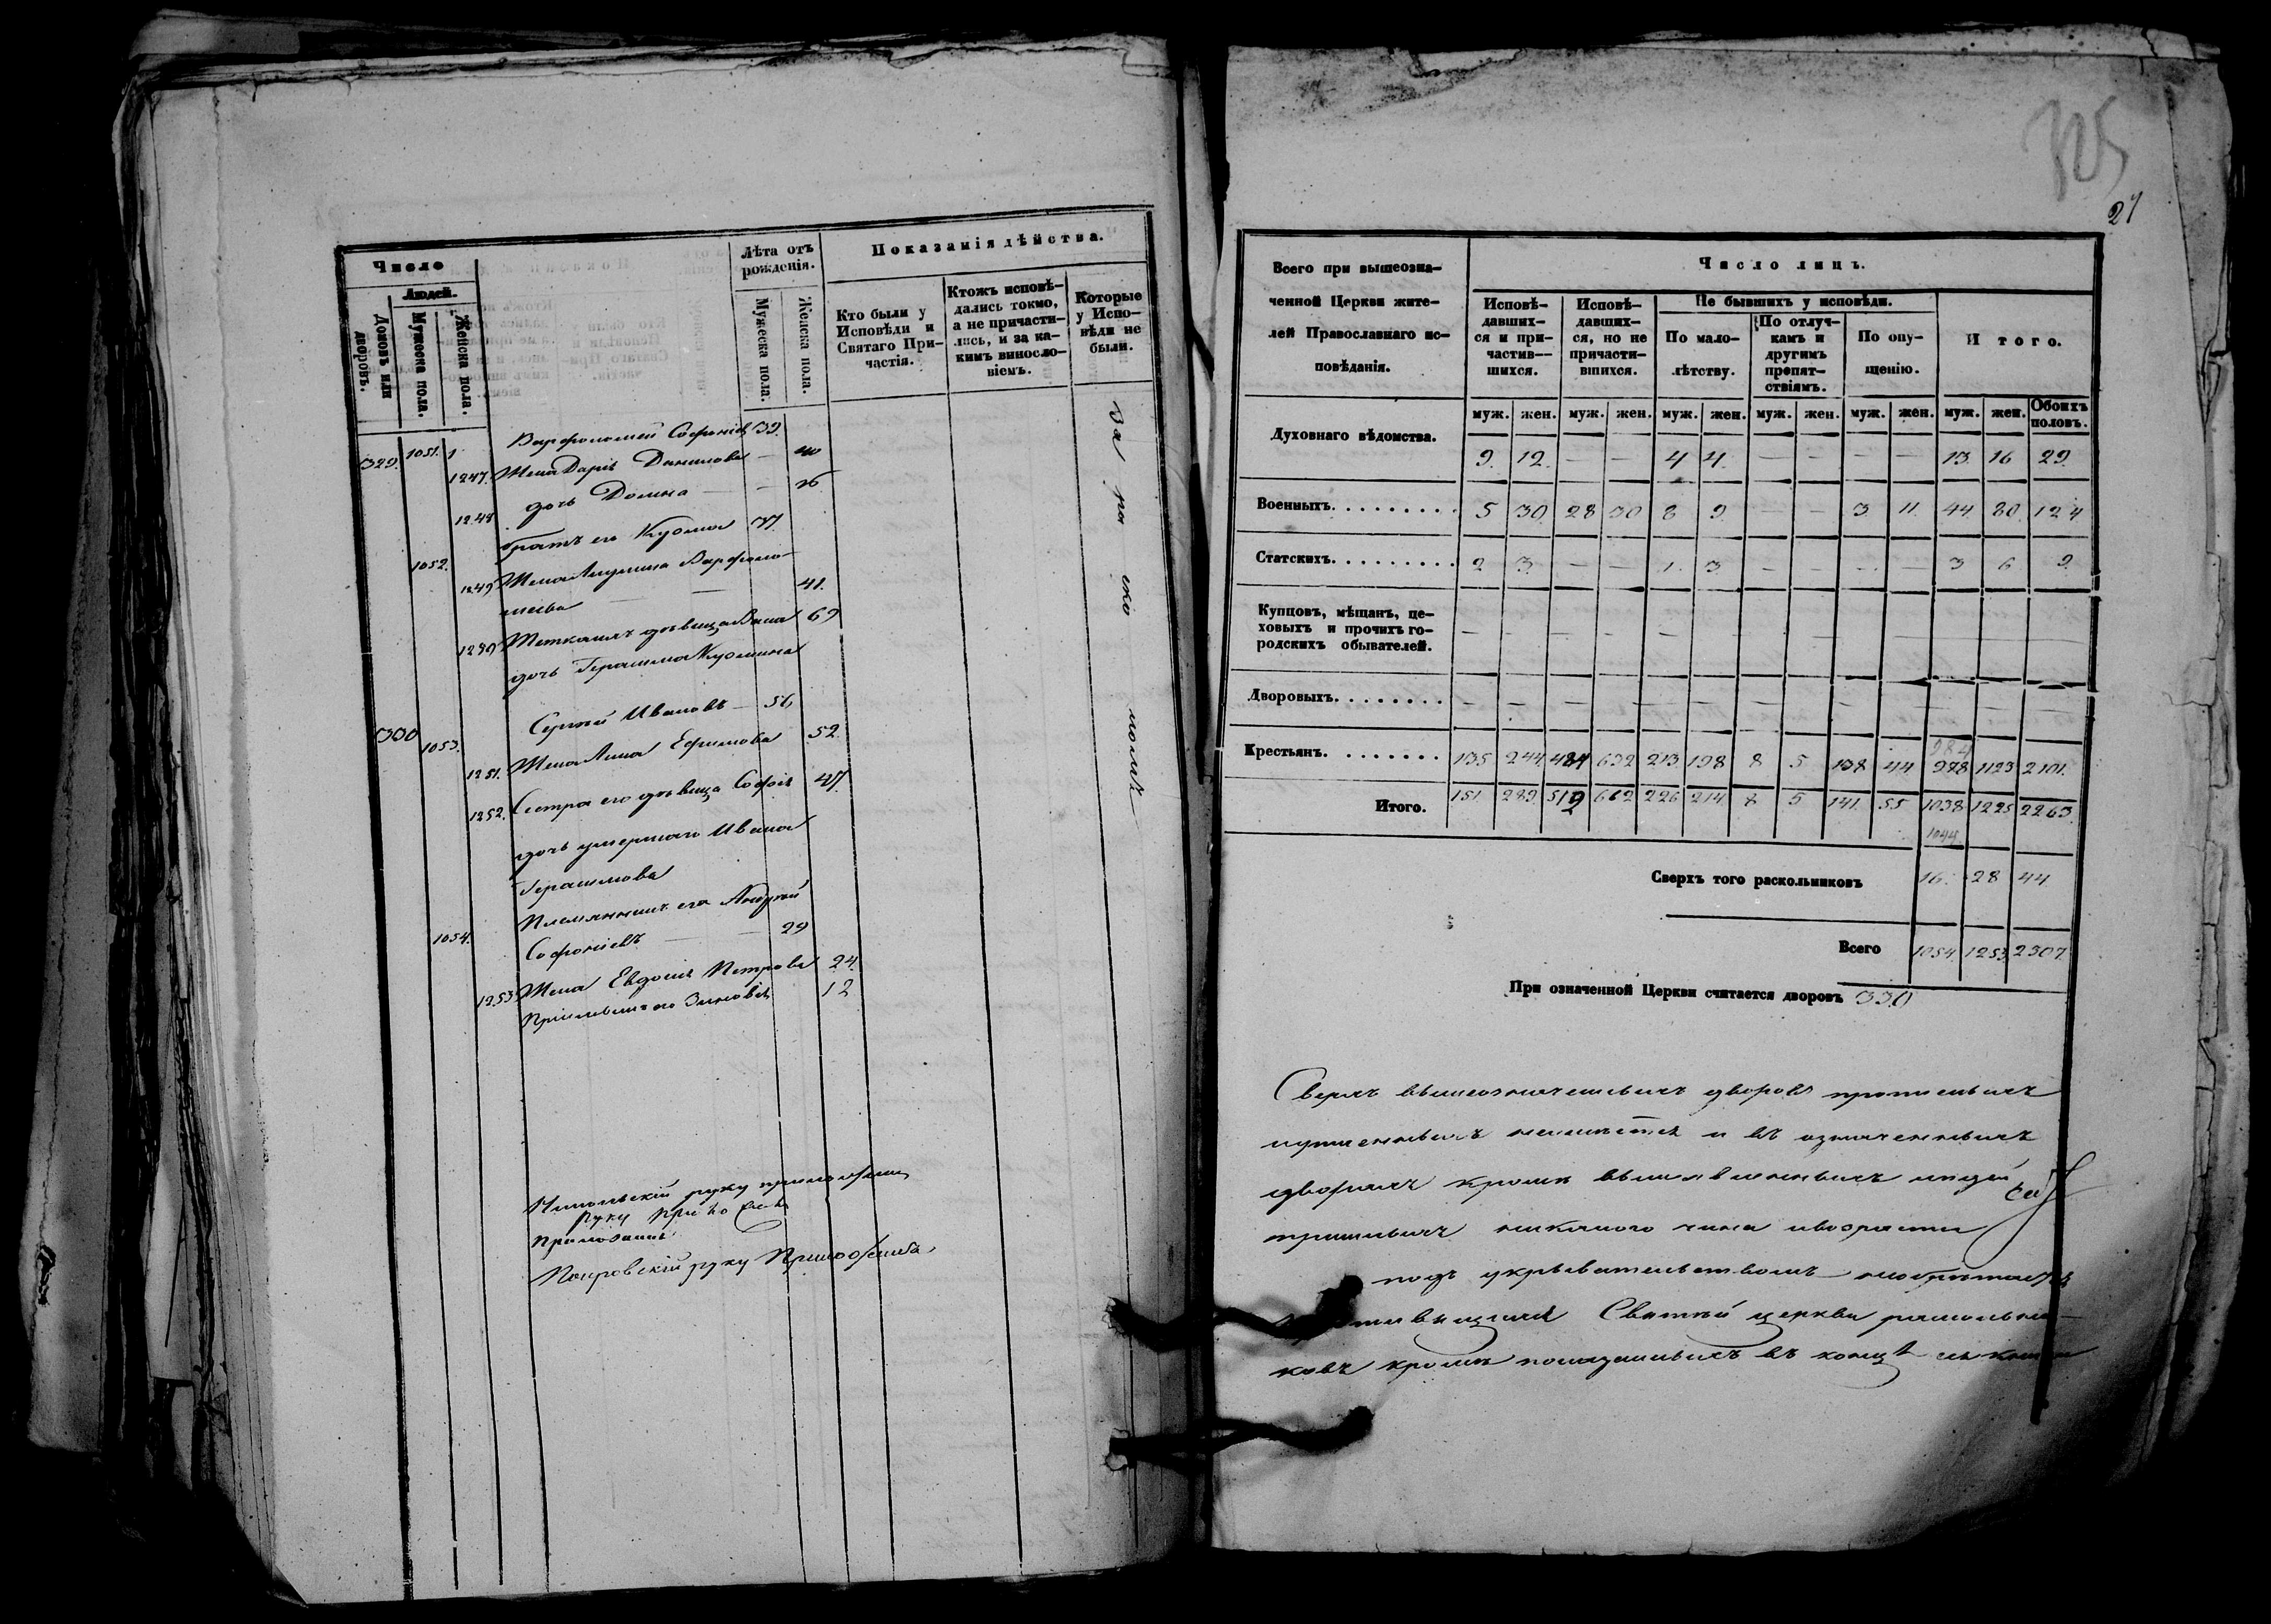 Число
Людей.
Домовъ или дворовъ.
Мужеска пола.
Женска пола.
Лѣта отъ рожденія.
Мужеска пола.
Женска пола.
Показанія дѣйства.
Кто были у Исповѣди и Святаго Причастія.
Ктожъ исповѣ-
дались токмо,
а не причасти-
лись, и за ка-
кимъ винословіемъ.
Которые
у Испо-
вѣди не
были.
329. 1051. 1 Варфоломей Софоніевъ 39.
1247. Жена Дарія Данилова — 40
1248 дочь Домна — — 16
1052. братъ его Кузма 37.
1249 Жена Акулина Варфоло-
меева — — 41.
1250 дѣвица 69
дочь Герасима Кузмина
330 1053. Сергѣй Ивановъ — 56
1251. Жена Анна Ефимова 52.
1252. Сестра его дѣвица Софія 47.
дочь умершаго Ивана
Герасимова
1054. Племянникъ его Андрей
Софоніевъ — — 29
1253 Жена Евдокія Петрова 24.
Зиновій 12
руку приложилъ
руку
Покровскій руку приложилъ
325
27
Всего при вышеозна-
ченной Церкви жите-
лей Православнаго ис-
повѣданія.
Число лицъ.
Исповѣ-
давших-
ся и при-
частив-
шихся.
Исповѣ-
давших-
ся, но не
причасти-
вшихся.
Не бывшихъ у исповѣди.
По мало-
лѣтству.
По отлуч-
камъ и
другимъ
препят-
ствіямъ.
По опу-
щенію.
Итого.
муж. жен. муж. жен. муж. жен. муж. жен. муж. жен. муж. жен. Обоихъ половъ.
Духовнаго вѣдомства. 9. 12. — — 4 4. — — — — 13. 16 29.
Военныхъ. . . . . . . . . 5 30. 28 30 8 9. — — 3 11. 44. 80. 124
Статскихъ. . . . . . . . . 2 3. — — 1. 3 — — — — 3 6 9.
Купцовъ, мѣщанъ, це-
ховыхъ и прочихъ го-
родскихъ обывателей. — — — — —
Дворовыхъ. . . . . . . . — — — — — — — — — — — — —
984
Крестьянъ. . . . . . . . 135 244 484 632 213. 198 8 5 138 44 978 1123 2101.
Итого. 151. 289. 512 662 226 214. 8 5 141. 55 1038 1225 2263.
1044
Сверхъ того раскольниковъ 16. 28 44.
Всего 1054. 1253. 2307.
При означенной Церкви считается дворовъ 330
Сверхъ вышеозначенныхъ дворовъ
и въ означенныхъ
дворахъ кромѣ людей
никакого чина и возраста
подъ укрывательствомъ
Святѣй церкви раскольни-
ковъ кромѣ показанныхъ въ концѣ